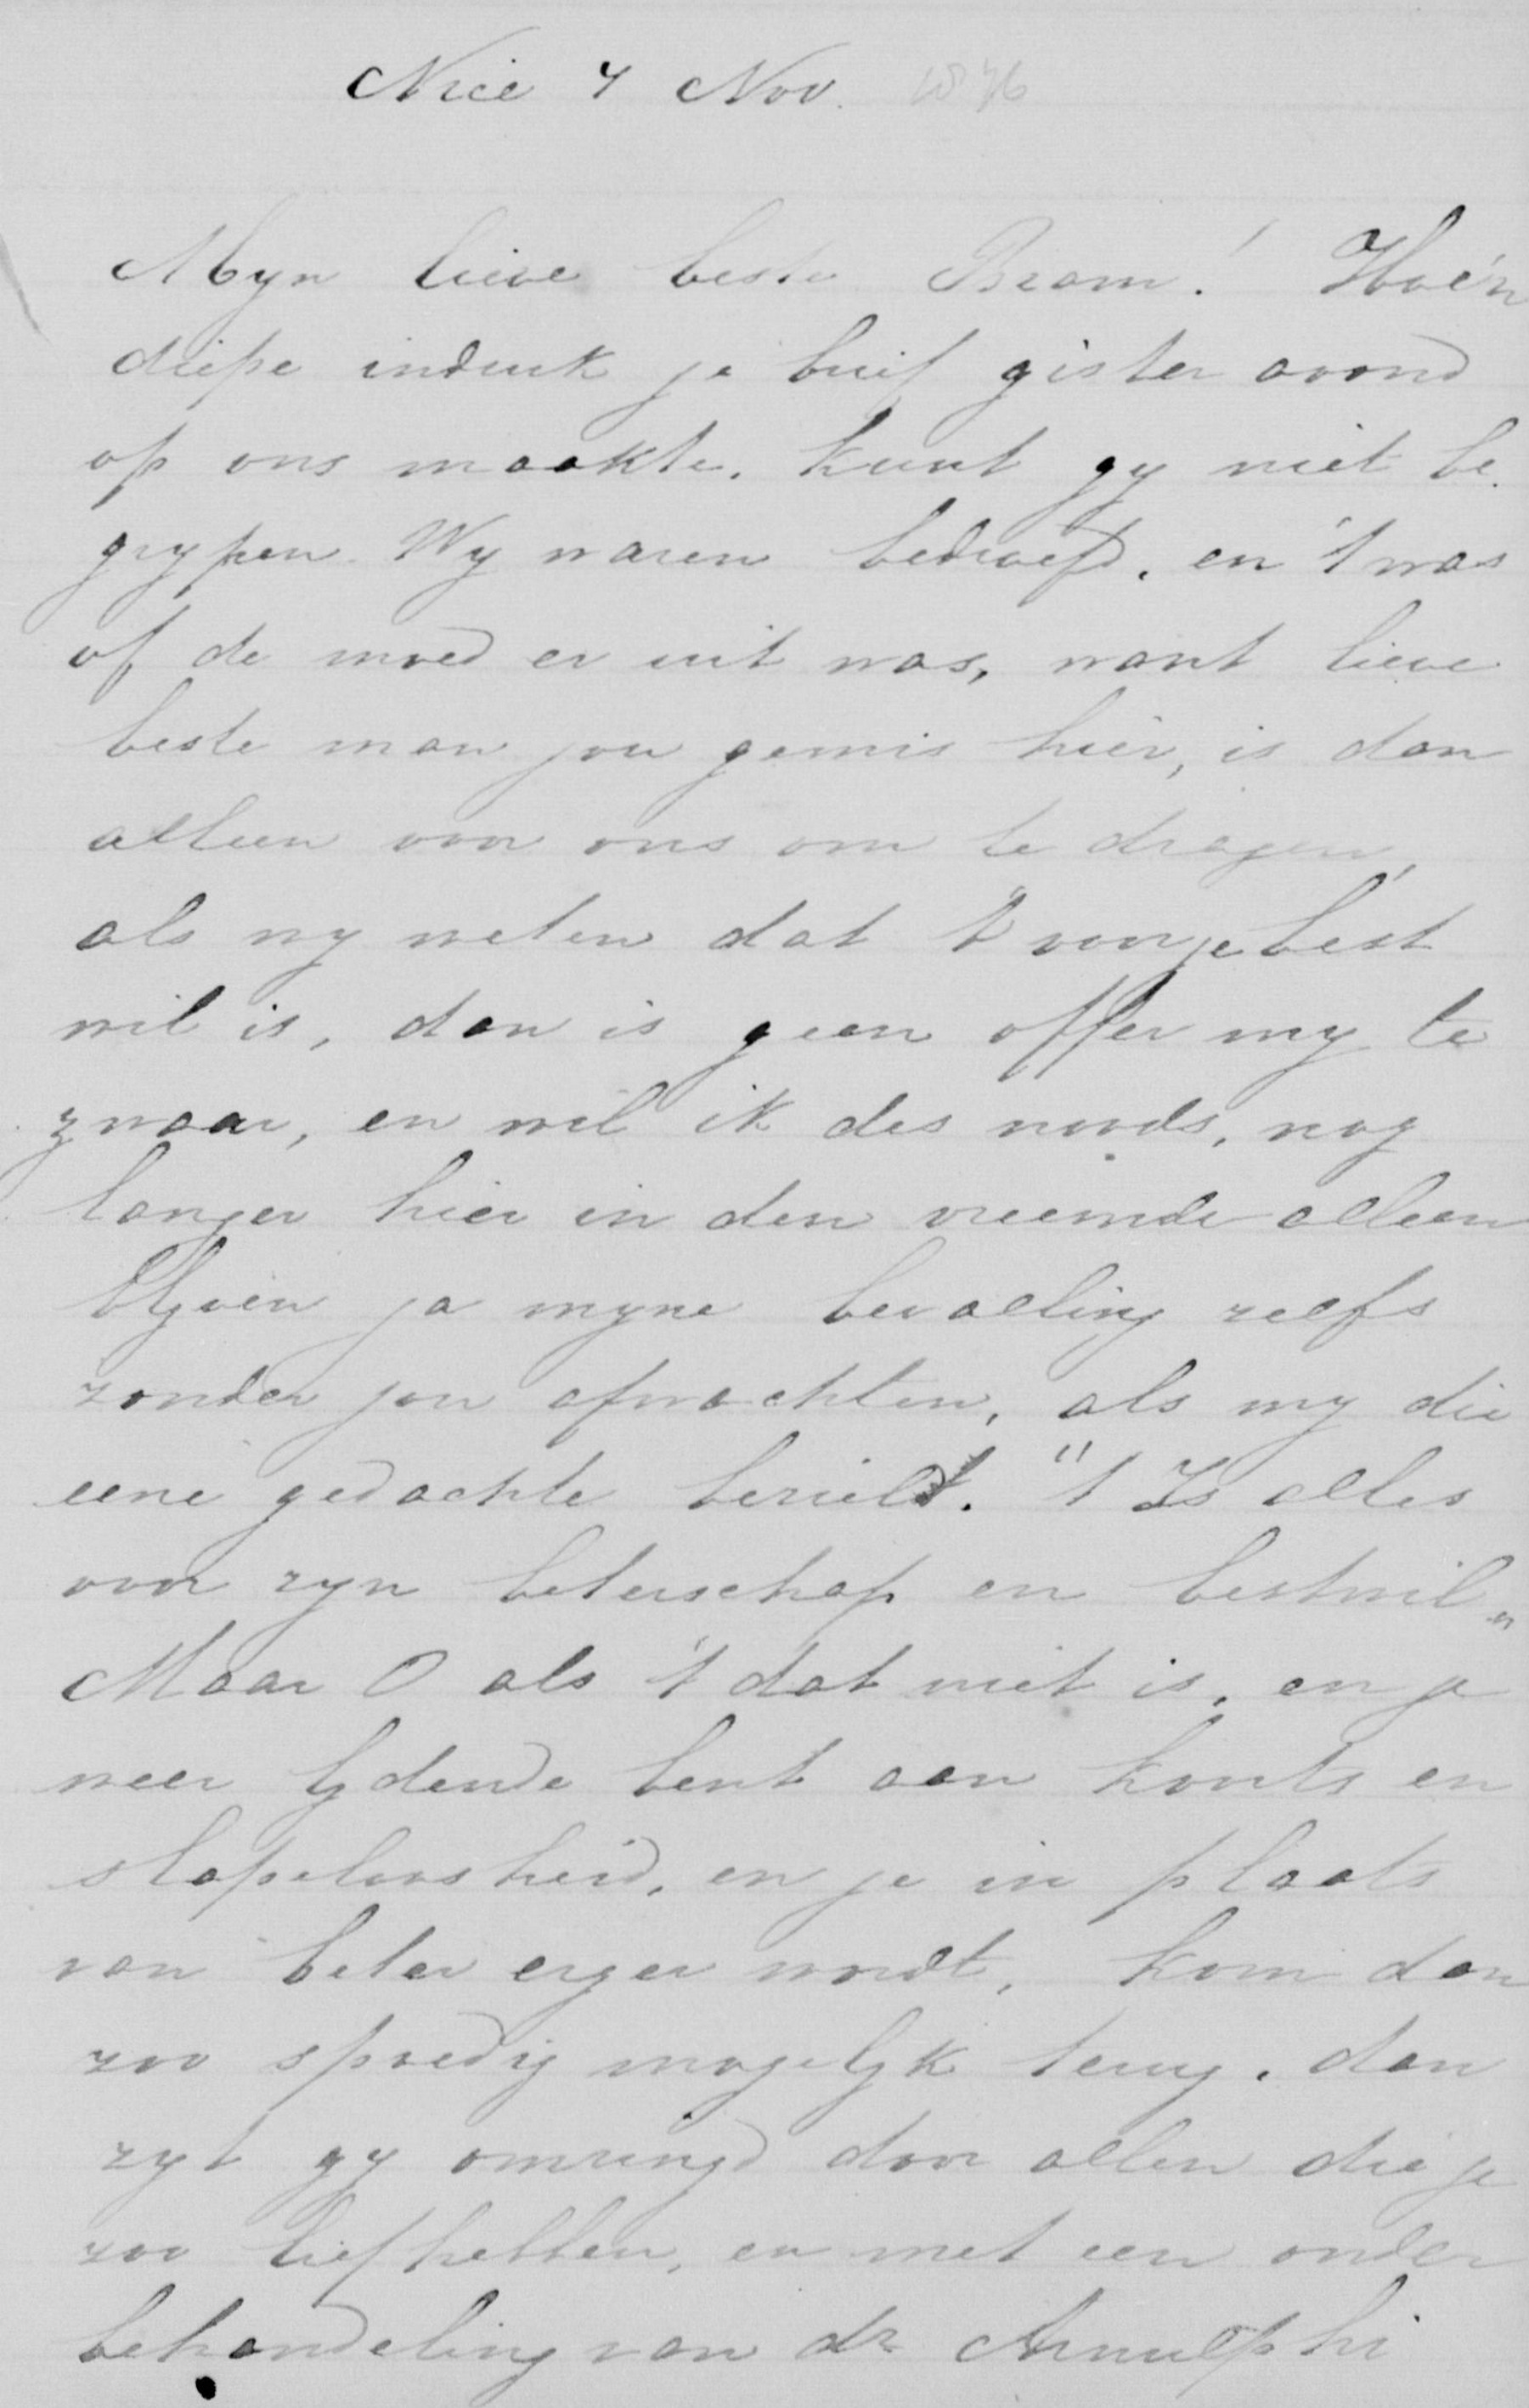 Nice 7 Nov. 1876
Myn lieve beste Bram! Hoe'n
diepe indruk je brief gister avond
op ons maakte, kunt gy niet be.
grypen. Wy waren bedroefd, en 't was
of de moed er uit was, want lieve
beste man jou gemis hier, is dan
alleen voor ons om te dragen,
als wy weten dat 't voor je best
wil is, dan is geen offer my te
zwaar, en wil ik des noods, nog
langer hier in den vreemde alleen
blyven ja myne bevalling zelfs
zonder jou afwachten, als my die
eene gedachte bezielt. "t Is alles
voor zyn beterschap en bestwil"
Maar O als 't dat niet is, en je
weer lydende bent aan koorts en
slapeloosheid, en je in plaats
van beter erger wordt, kom dan
zoo spoedig mogelyk terug, dan
zyt gy omringd door allen die je
zoo liefhebben, en met een onder
behandeling van dr Arnulphi